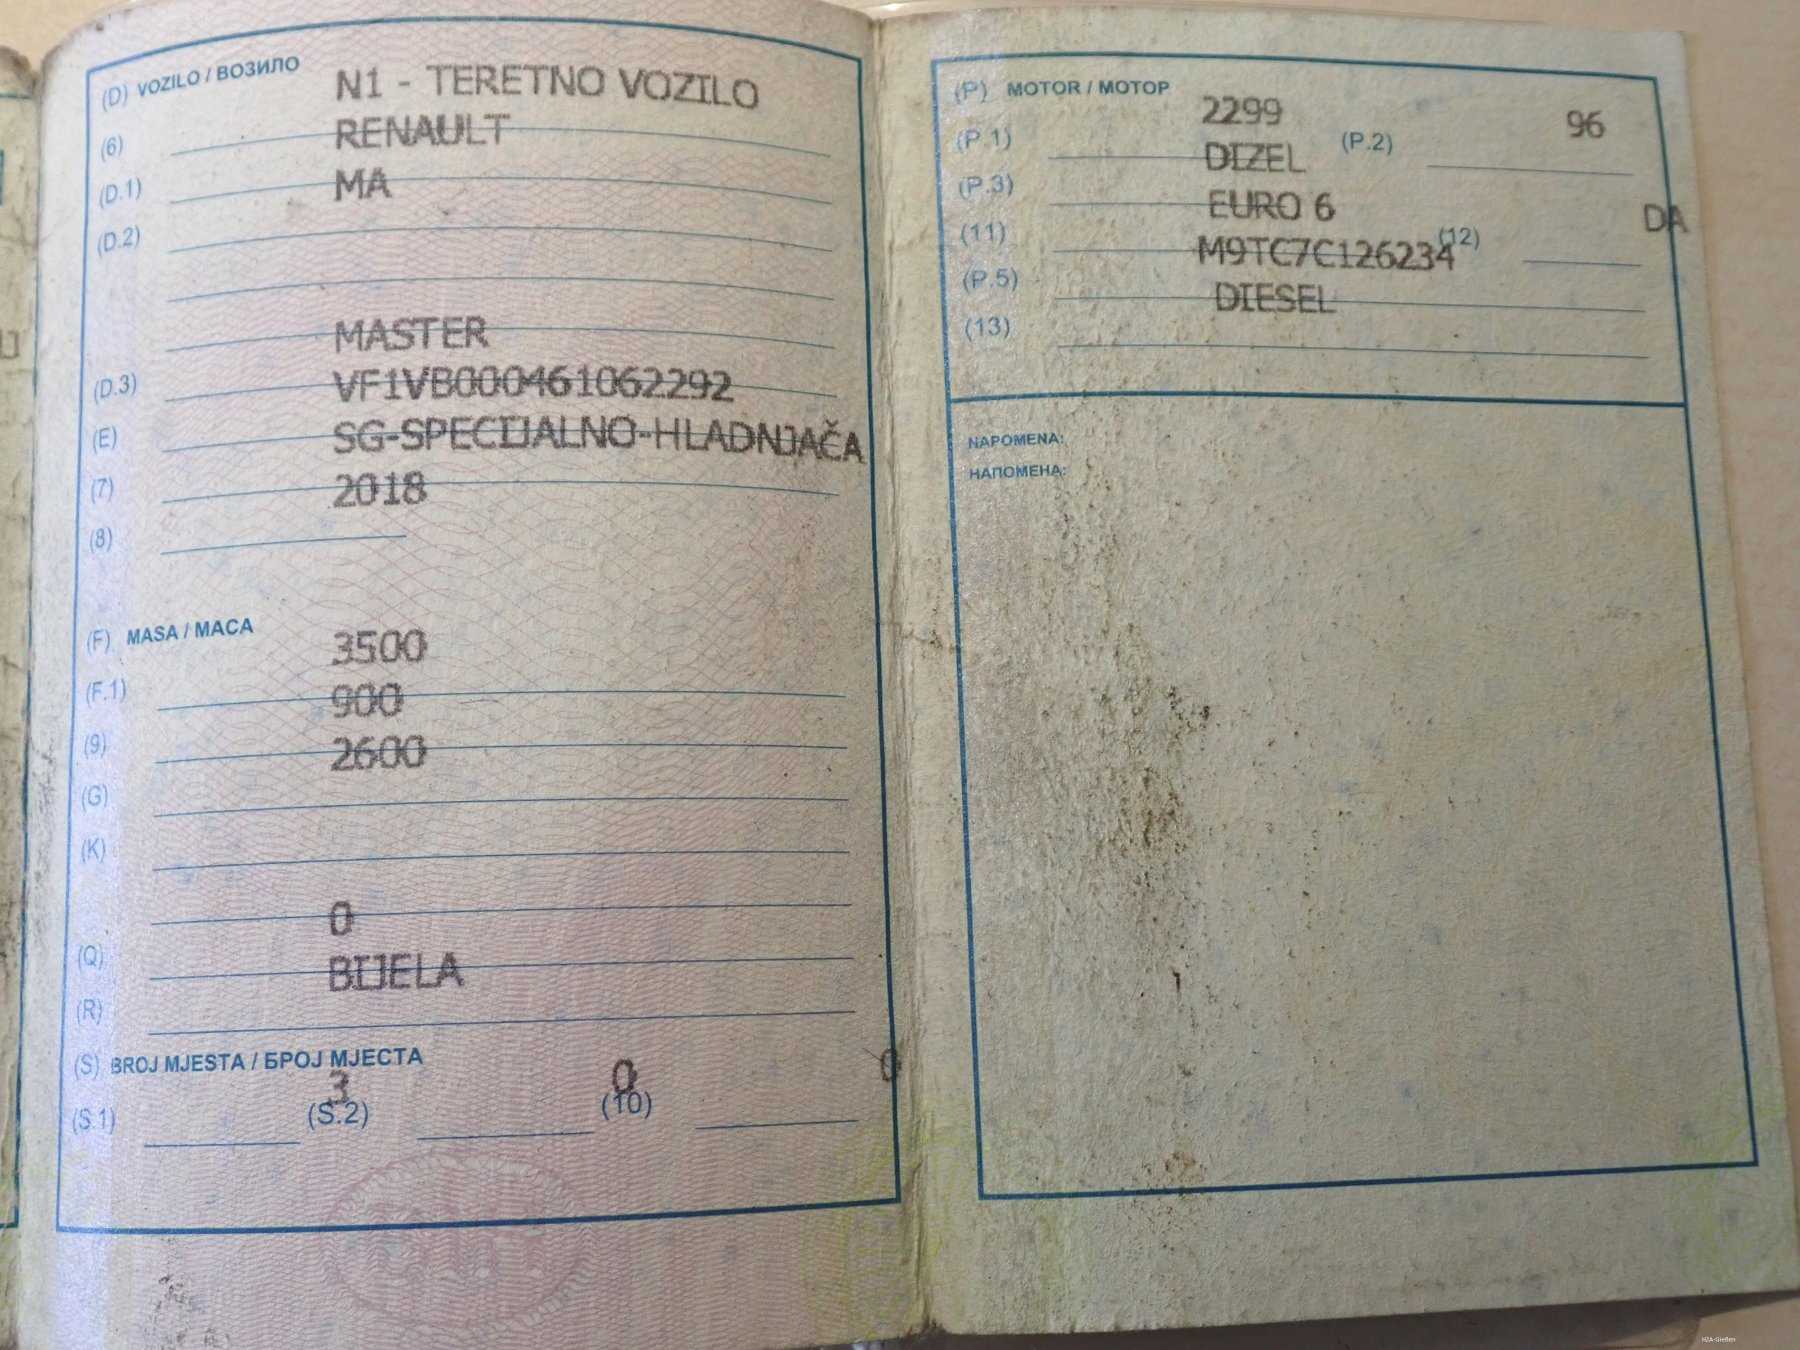 (D) VOZILO / ВОЗИЛО N1 - TERETNO VOZILO
(6) RENAULT
(D.1) MA
(D.2)
MASTER
(D.3) VF1VB000461062292
(E) SG-SPECIJALNO-HLADNJAČA
(7) 2018
(8)
(F) MASA / МАСА 3500
(F.1) 900
(9) 2600
(G)
(K)
0
(Q) BIJELA
(R)
(S) BROJ MJESTA / БРОЈ МЈЕСТА
3 0 0
(S.1) (S.2) (10)
(P) MOTOR / МОТОР 2299 96
(P.1) DIZEL (P.2)
(P.3) EURO 6 DA
(11) M9TC7C126234 (12)
(P.5) DIESEL
(13)
NAPOMENA:
НАПОМЕНА:
HZA-Gießen